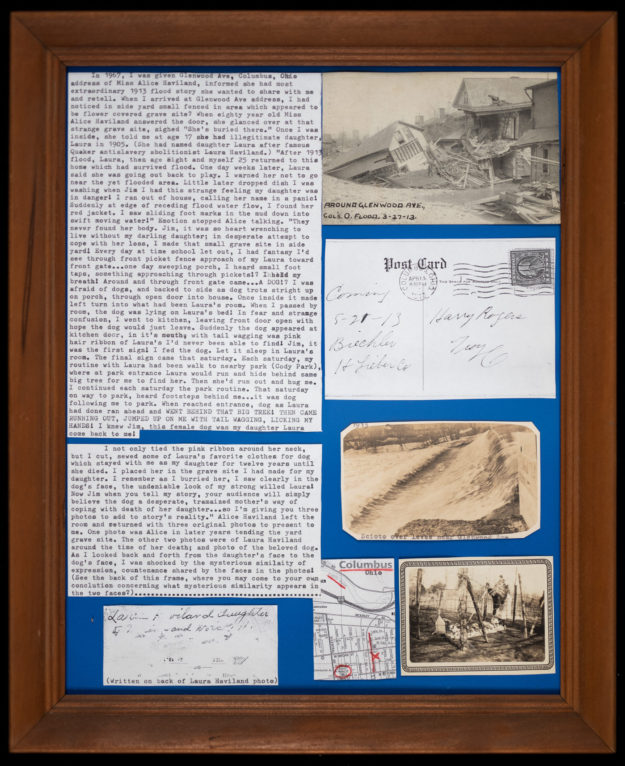 In 1967, I was given Glenwood Ave, Columbus, Ohio
address of Miss Alice Haviland, informed she had most
extraordinary 1913 flood story she wanted to share with me
and retell. When I arrived at Glenwood Ave address, I had
noticed in side yard small fenced in area which appeared to
be flower covered grave site? When eighty year old Miss
Alice Haviland answered the door, she glanced over at that
strange grave site, sighed "She's buried there." Once I was
inside, she told me at age 17 she had illegitimate daughter,
Laura in 1905. (She had named daughter Laura after famous
Quaker antislavery abolitionist Laura Haviland.) "After 1913
flood, Laura, then age eight and myself 25 returned to this
home which had survived flood. One day weeks later, Laura
said she was going out back to play. I warned her not to go
near the yet flooded area. Little later dropped dish I was
washing when Jim I had this strange feeling my daughter was
in danger! I ran out of house, calling her name in a panic!
Suddenly at edge of receding flood water flow, I found her
red jacket. I saw sliding foot marks in the mud down into
swift moving water!" Emotion stopped Alice talking. "They
never found her body. Jim, it was so heart wrenching to
live without my darling daughter; in desperate attempt to
cope with her loss, I made that small grave site in side
yard! Every day at time school let out, I had fantasy I'd
see through front picket fence approach of my Laura toward
front gate...one day sweeping porch, I heard small foot
taps, something approaching through pickets!? I held my
breath! Around and through front gate came...A DOG!? I was
afraid of dogs, and backed to side as dog trots stright up
on porch, through open door into house. Once inside it made
left turn into what had been Laura's room. When I passed by
room, the dog was lying on Laura's bed! In fear and strange
confusion, I went to kitchen, leaving front door open with
hope the dog would just leave. Suddenly the dog appeared at
kitchen door, in it's mouth; with tail wagging was pink
hair ribbon of Laura's I'd never been able to find! Jim, it
was the first sign! I fed the dog. Let it sleep in Laura's
room. The final sign came that saturday. Each saturday, my
routine with Laura had been walk to nearby park (Cody Park),
where at park entrance Laura would run and hide behind same
big tree for me to find her. Then she'd run out and hug me.
I continued each saturday the park routine. That saturday
on way to park, heard footsteps behind me...it was dog
following me to park. When reached entrance, dog as Laura
had done ran ahead and WENT BEHIND THAT BIG TREE! THEN CAME
RUNNING OUT, JUMPED UP ON ME WITH TAIL WAGGING, LICKING MY
HANDS! I knew Jim, this female dog was my daughter Laura
come back to me!
I not only tied the pink ribbon around her neck,
but I cut, sewed some of Laura's favorite clothes for dog
which stayed with me as my daughter for twelve years until
she died. I placed her in the grave site I had made for my
daughter. I remember as I burried her, I saw clearly in the
dog's face, the undeniable look of my strong willed Laura!
Now Jim when you tell my story, your audience will simply
believe the dog a desperate, tramained mother's way of
coping with death of her daughter...so I'm giving you three
photos to add to story's reality." Alice Haviland left the
room and returned with three original photos to present to
me. One photo was Alice in later years tending the yard
grave site. The other two photos were of Laura Haviland
around the time of her death; and photo of the beloved dog.
As I looked back and forth from the daughter's face to the
dog's face, I was shocked by the mysterious similaity of
expression, countenance shared by the faces in the photos!
(See the back of this frame, where you may come to your own
conclution concerning what mysterious similarity appears in
the two faces?)
AROUND GLENWOOD AVE,
COL'S. O. FLOOD. 3-27-13.
Post Card
Coming
5-21-13
Harry Rogers
Troy O
Scioto over levee near Glenwood
Columbus
Ohio
Haviland daughter
(Written on back of Laura Haviland photo)